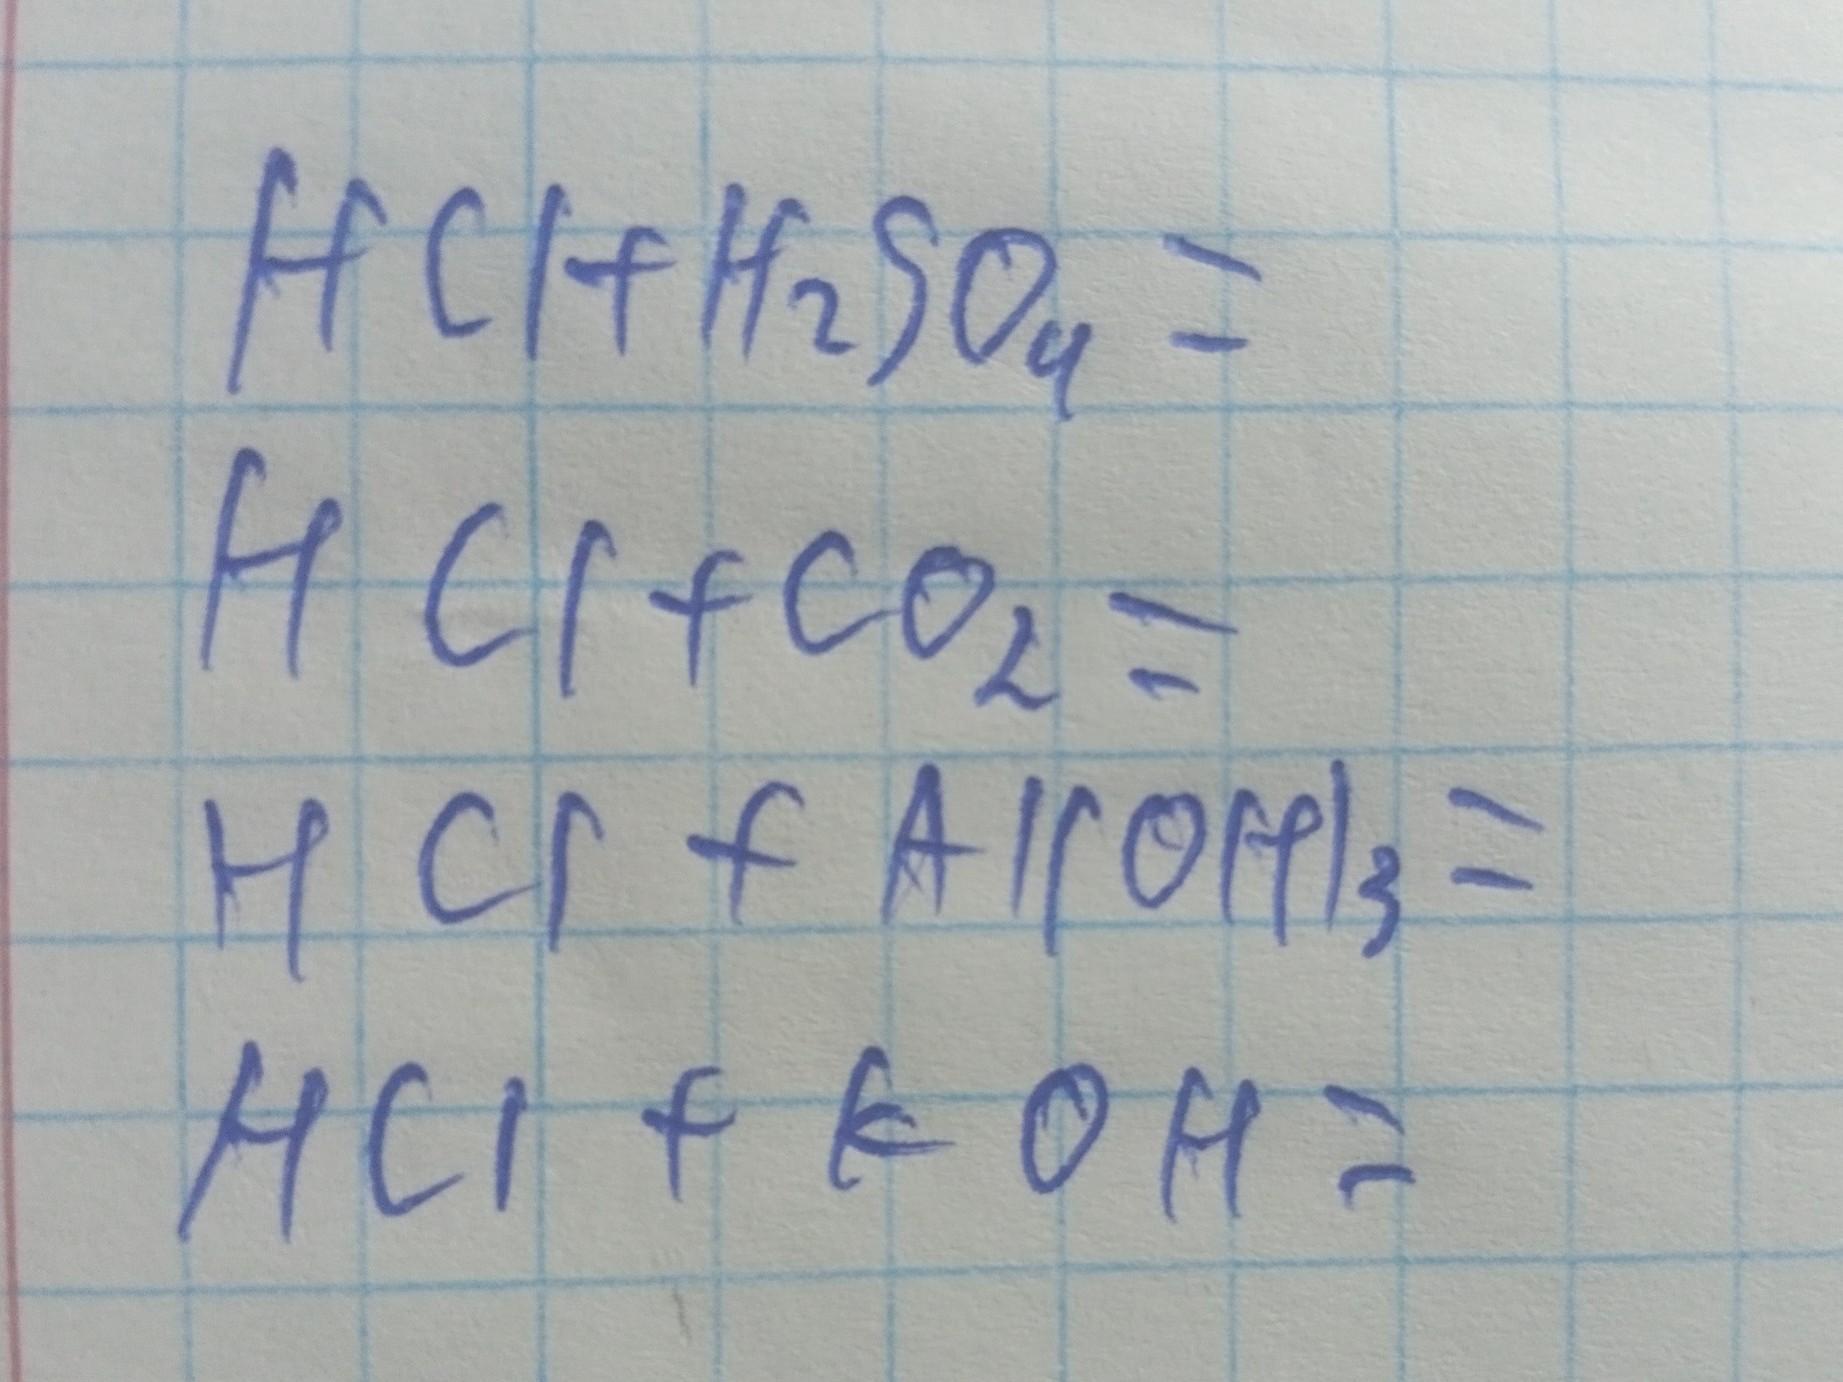 HCl+H₂SO₄=
HCl+CO₂=
HCl+Al(OH)₃=
HCl+KOH=